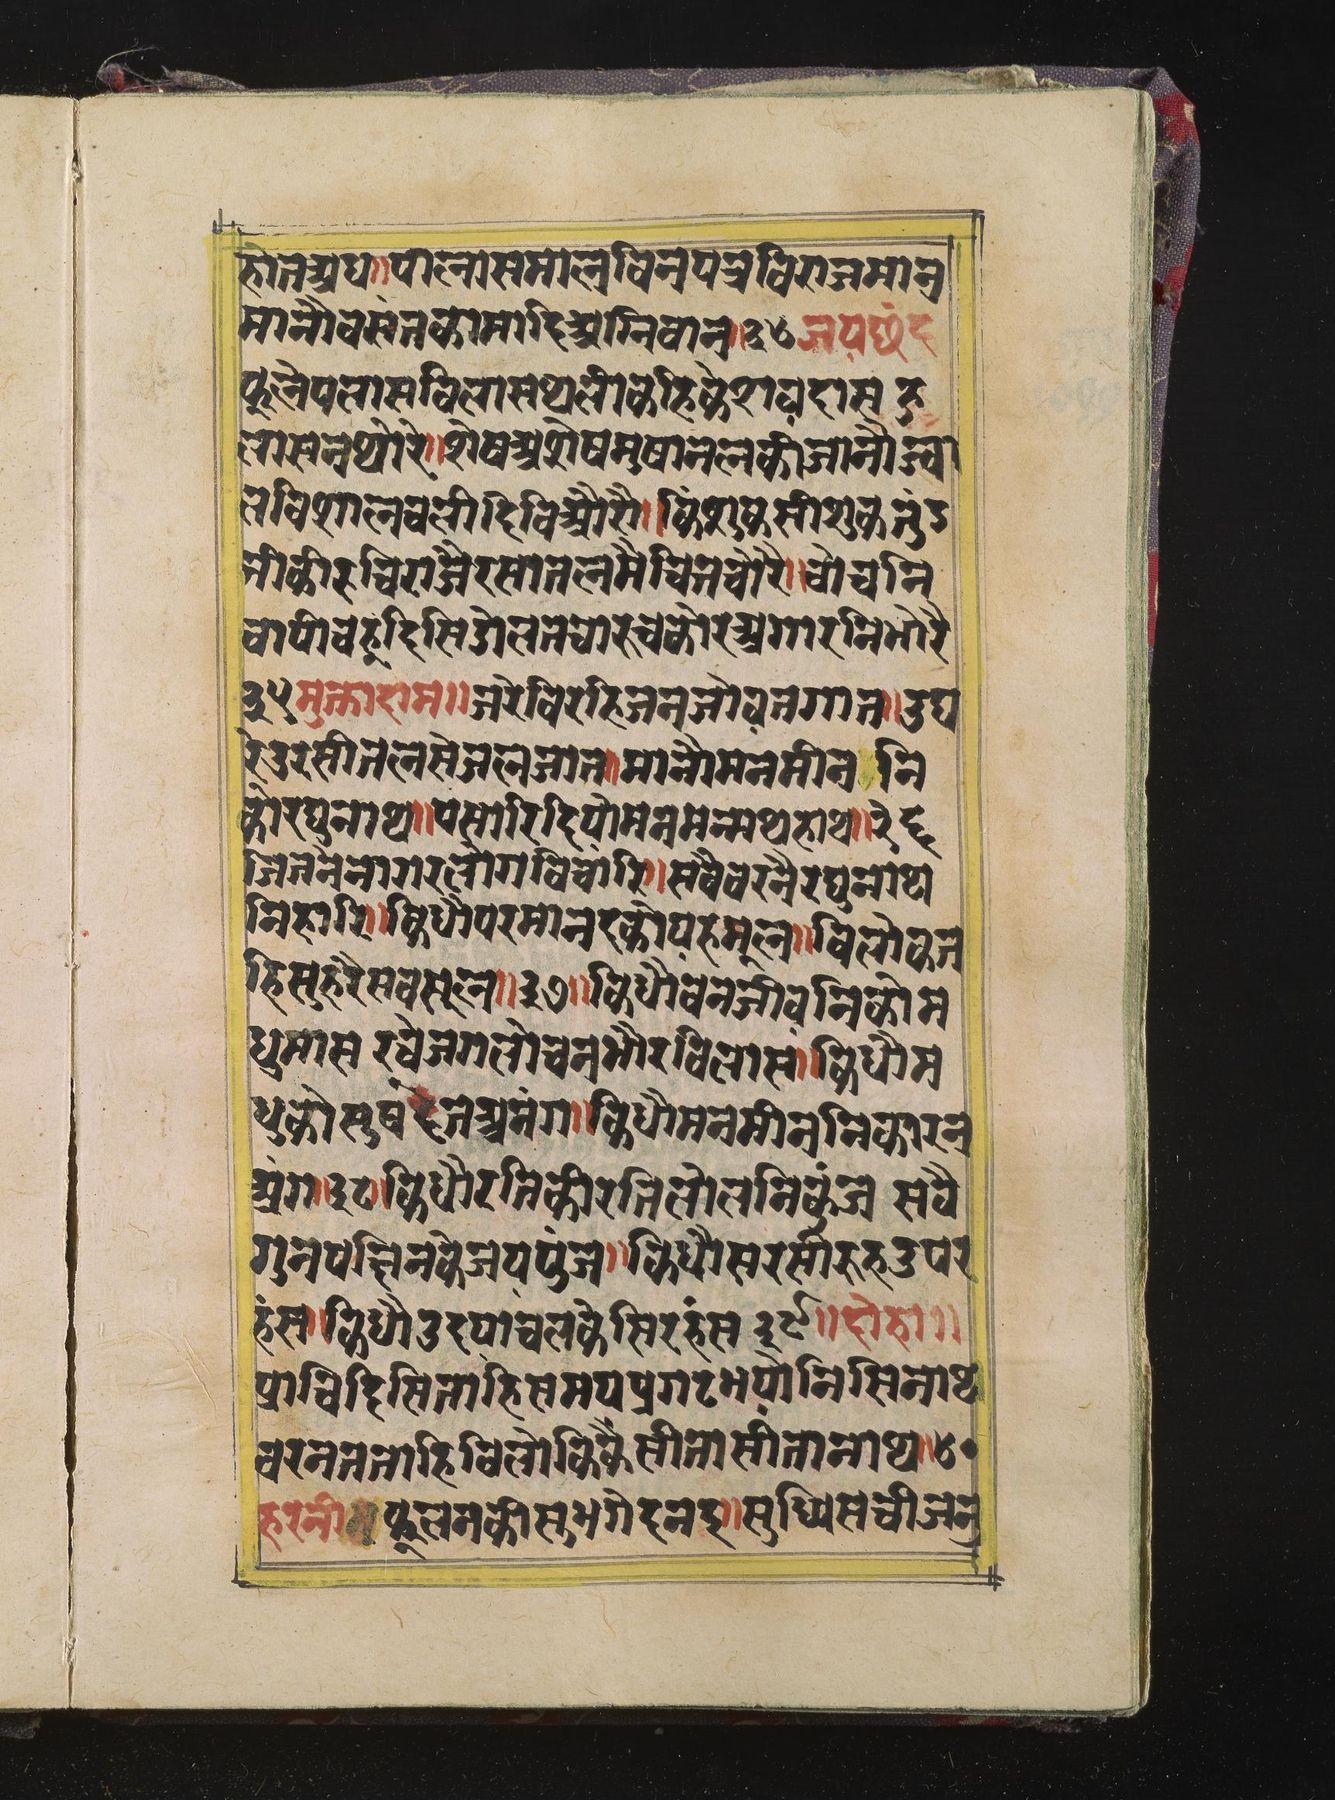 होतअघ॥पलासमालविनपत्रविराजमान
मानौवसंतकामादिअग्निवान॥३४जयछंद
फूलेपलासविलासथलीकहिकेशवदास हु
लासनथोरे॥शेषअशेषमुषानलकीजानौज्वा
लविशालचलीदिविओरै॥किंशुकसीशुकतुंड
नीकीरुचिराजैरसातलमैचितचोरै॥चोचनि
चापीचहूदिसिडोलतचारुचकोरअगारनिभोरै
३५मुक्तादाम॥जरेविरहिजनजोवतगात॥उघ
रेउरसीतलसेजलजात॥मानौमनमीन नि
कोरघुनाथ॥पसारिदियोमनमन्मथहाथ॥३६
जितनेनागरलोगविचारि॥सवैवरनैरघुनाथ
निहारि॥किधौपरमानदकोयहमूल॥विलोकत
हिसुहरैसवसूल॥३७॥किधौवनजीवनिकोम
धुमास रचेजगलोचनभौरविलास॥किधौम
धुकोसुषदेतअनंग॥किधौमनमीननिकारन
अंग॥३८॥किधौरतिकीरतिलोलनिकुंज सवै
गुनपछिनकेजयपुंज॥किधौसरसीरुहउपर
हंस॥किधौउदयाचलकेसिरहंस ३९॥दोहा॥
प्राचिदिसिताहिसमयप्रगटभयोनिसिनाथ
वरनतताहिविलोकिकैसीतासीतानाथ॥४०
हरनी फूलनकीसुभगेदनइ॥सुघिसचीजनु